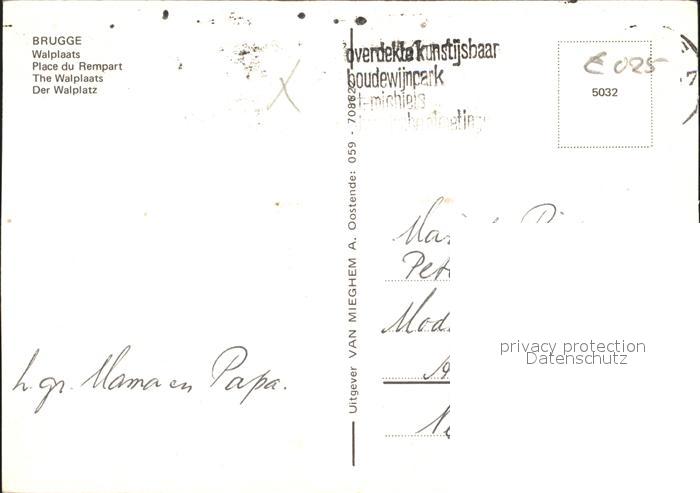 BRUGGE
Walplaats
Place du Rempart
The Walplaats
Der Walplatz
overdekte kunstijsbaar
boudewijnpark
t-michiels
€ 025
5032
Uitgever VAN MIEGHEM A. Oostende: 059 - 70862
Pet
Mod.
privacy protection
Datenschutz
h. gr. Mama en Papa.